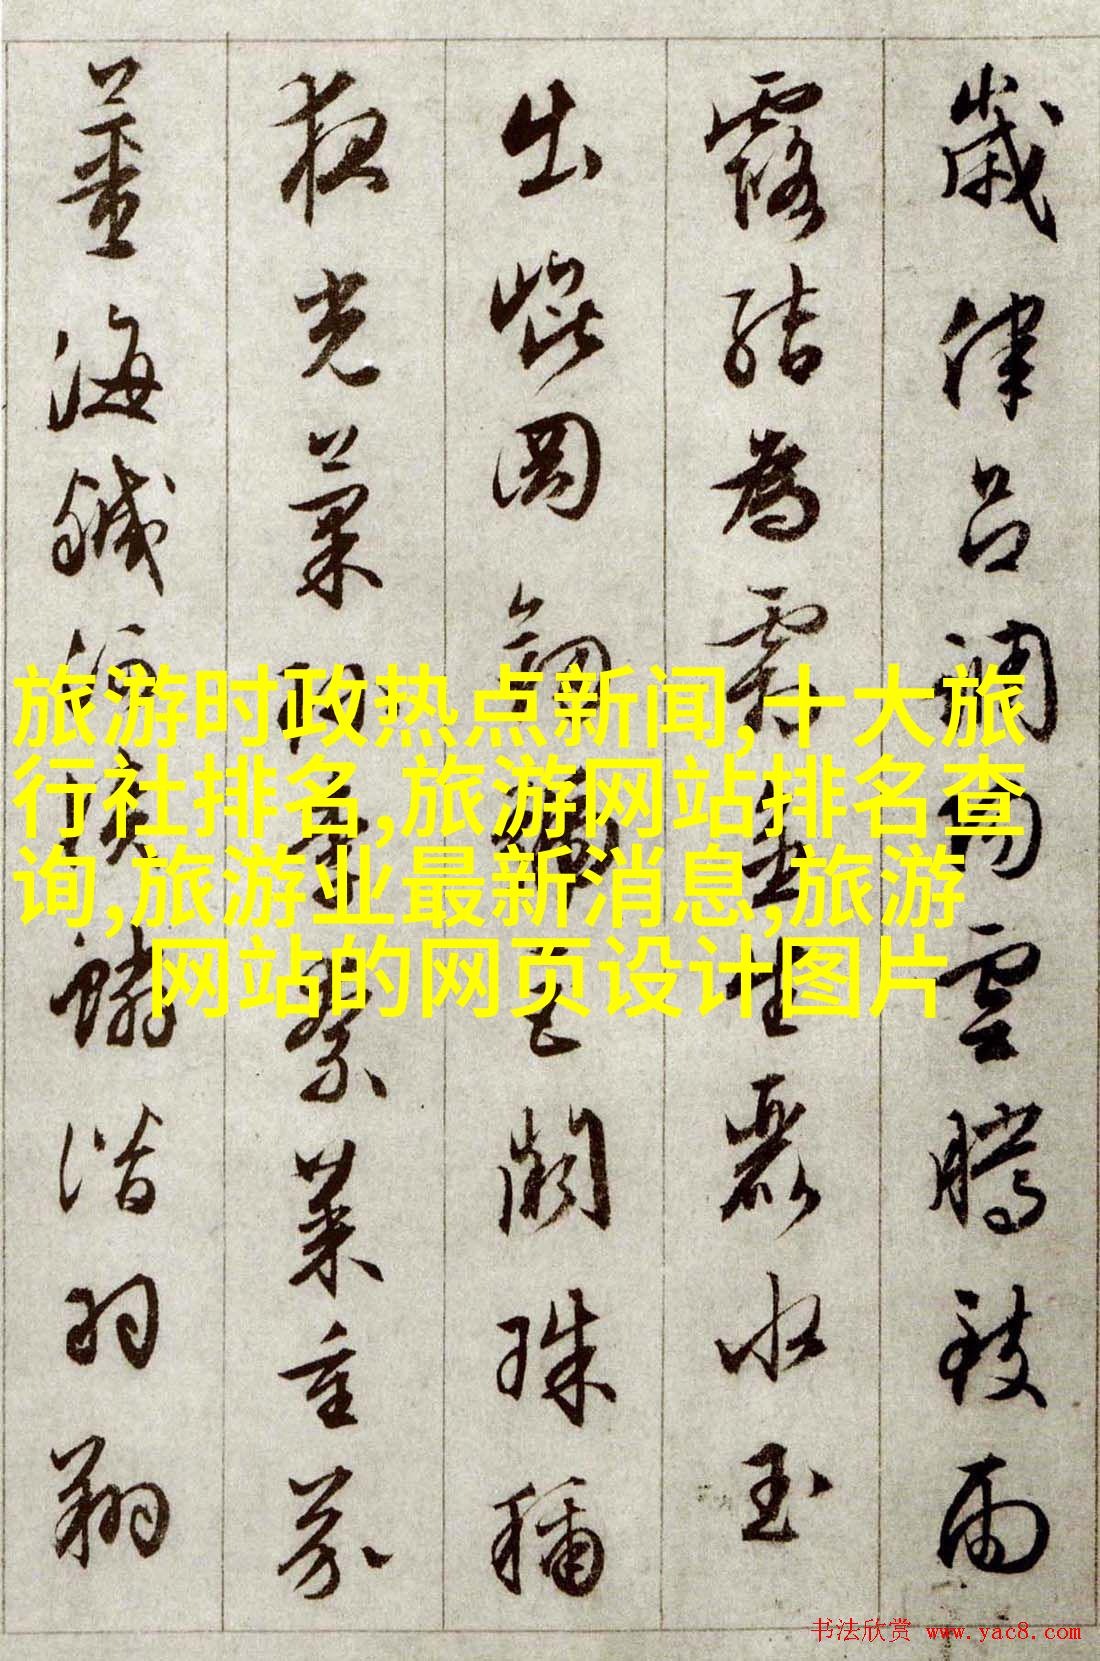 歲律呂調陽雲騰致雨
露結為霜金生麗水玉
出崐岡劍號巨闕珠稱
夜光菓珍李柰菜重芥
薑海鹹河淡鱗潛羽翔
旅游时政热点新闻,十大旅
行社排名,旅游网站排名查
询,旅游业最新消息,旅游
网站的网页设计图片
书法欣赏 www.yac8.com